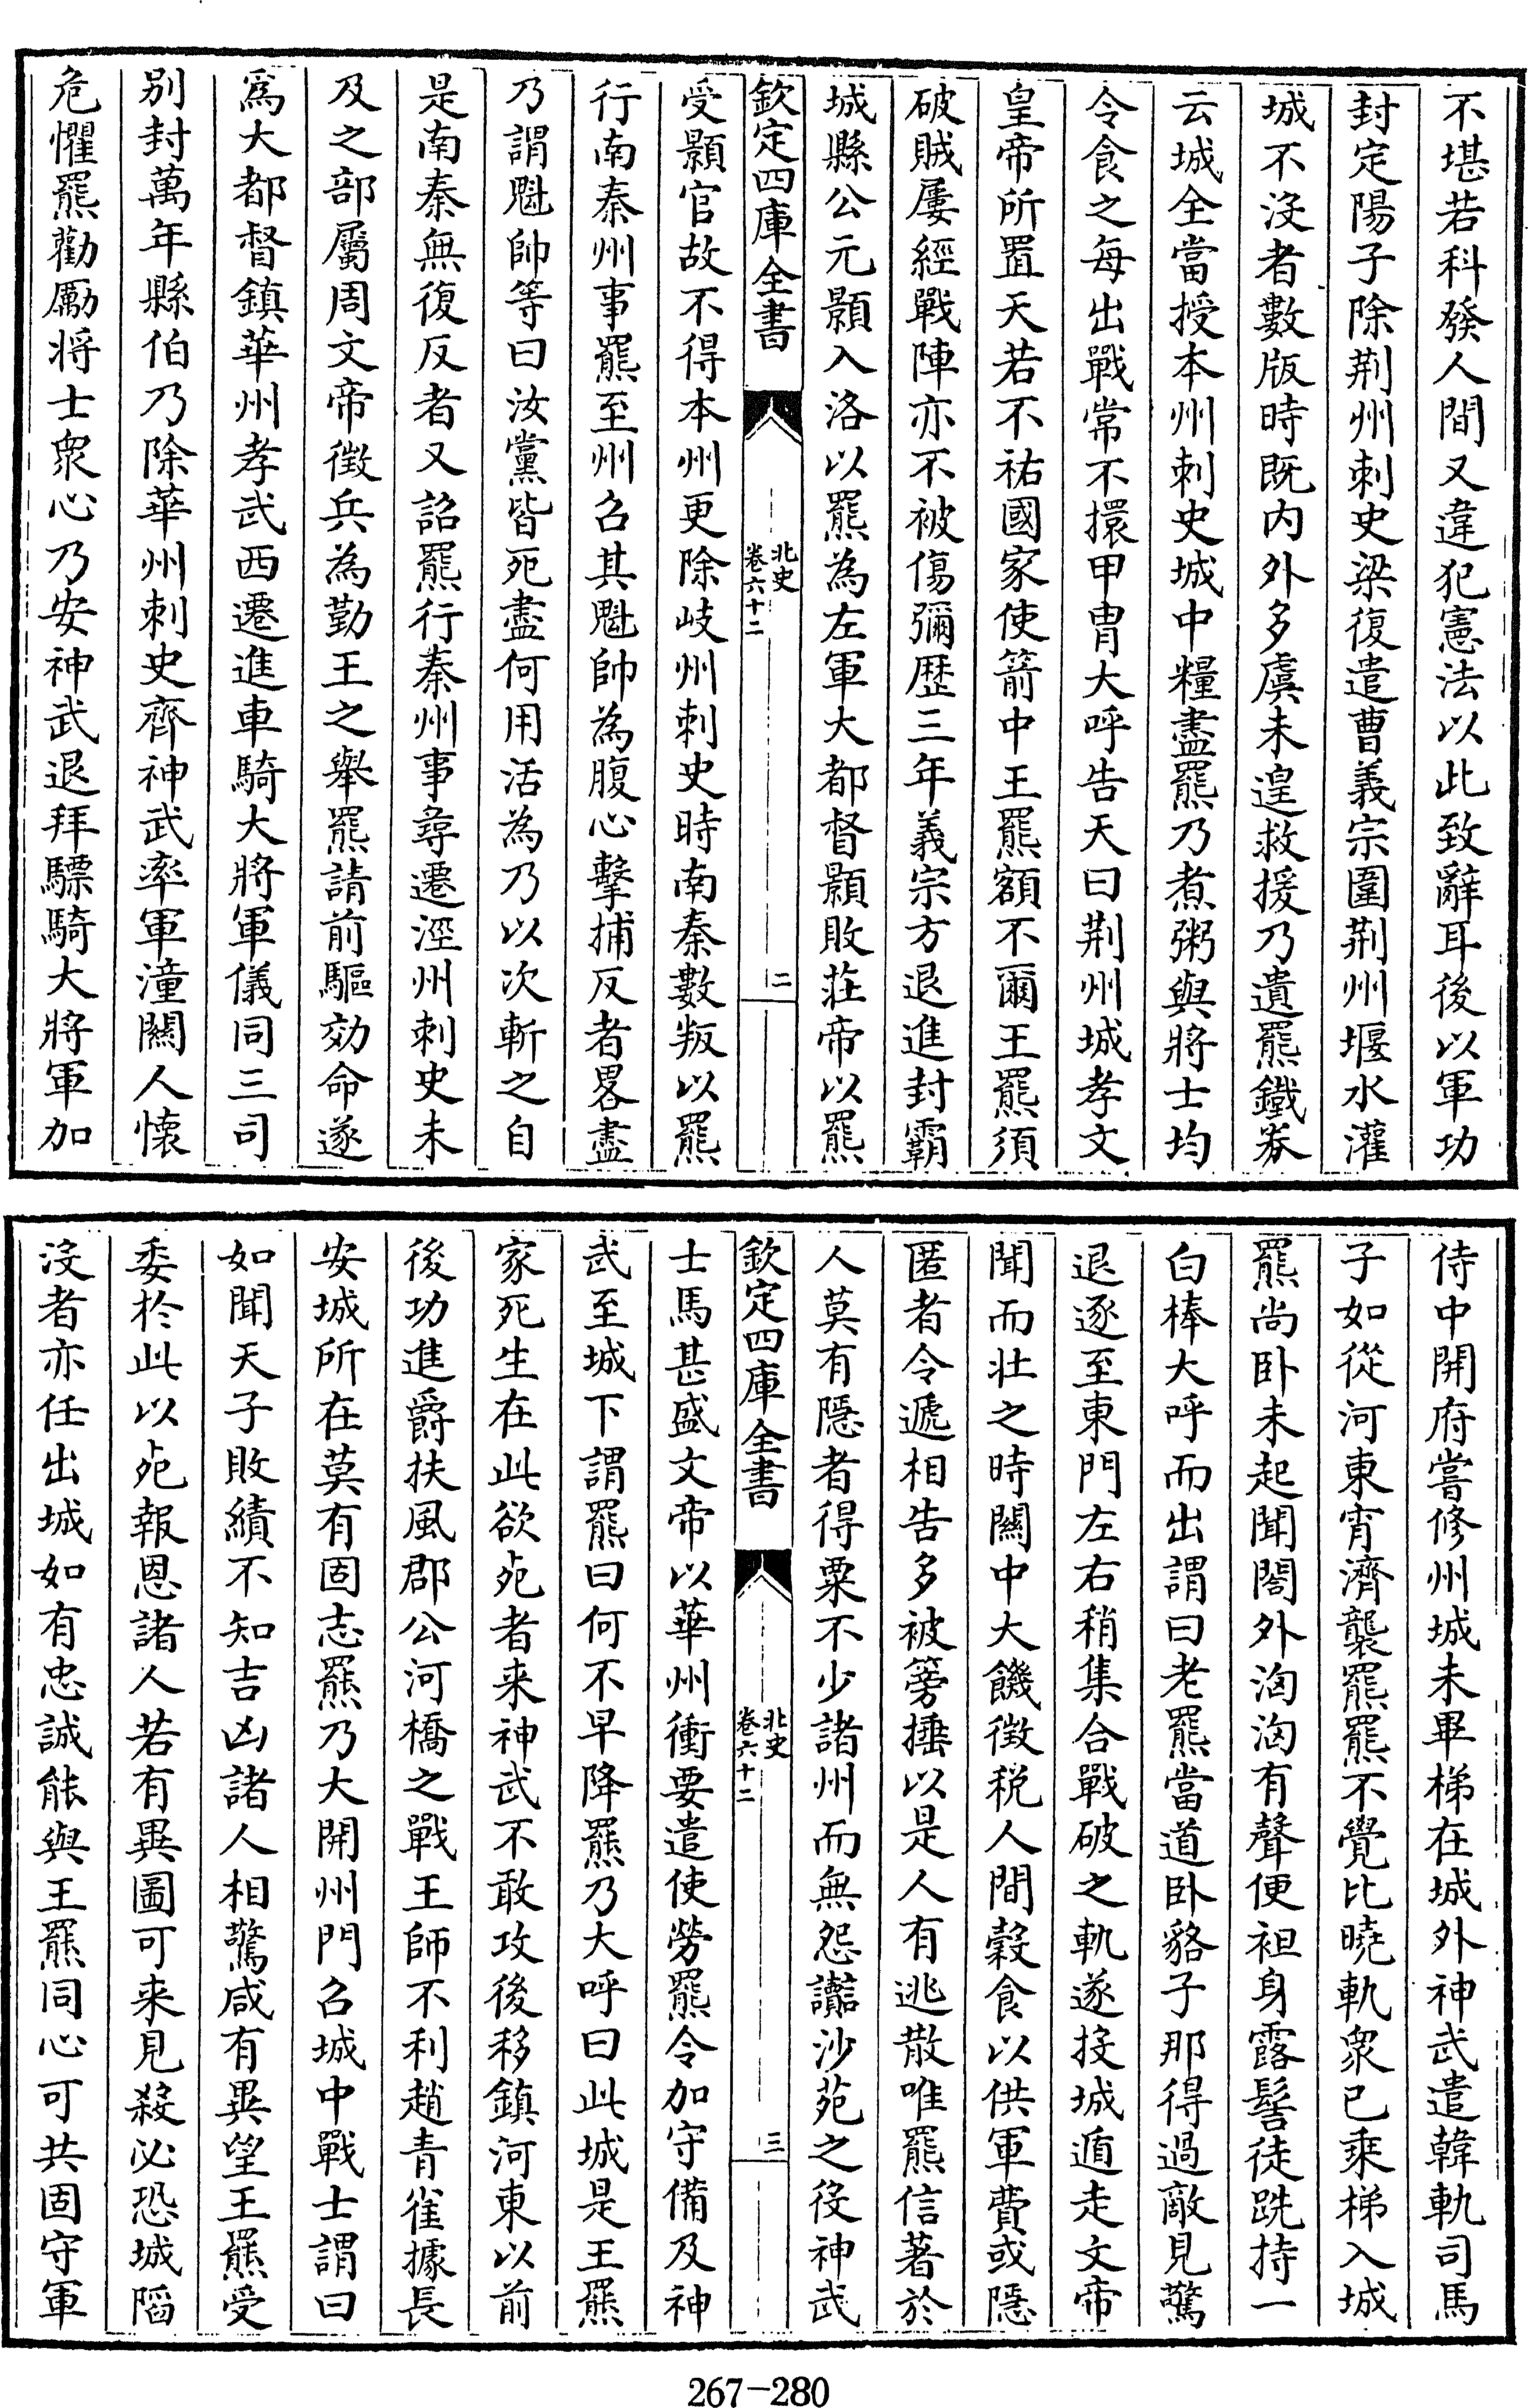 不堪若科發人間又違犯憲法以此致辭耳後以軍功
封定陽子除荆州刺史梁復遣曹義宗圍荆州堰水灌
城不沒者數版時既内外多虞未遑救援乃遺羆鐵券
云城全當授本州刺史城中糧盡羆乃煮粥與將士均
令食之每出戰常不擐甲胄大呼告天曰荆州城孝文
皇帝所置天若不祐國家使箭中王羆額不爾王羆須
破賊屢經戰陣亦不被傷彌歷三年義宗方退進封霸
城縣公元顥入洛以羆為左軍大都督顥敗莊帝以羆
欽定四庫全書
北史
卷六十二
二
受顥官故不得本州更除岐州刺史時南秦數叛以羆
行南秦州事羆至州召其魁帥為腹心擊捕反者畧盡
乃謂魁帥等曰汝黨皆死盡何用活為乃以次斬之自
是南秦無復反者又詔羆行秦州事尋遷涇州刺史未
及之部屬周文帝徵兵為勤王之舉羆請前驅効命遂
爲大都督鎮華州孝武西遷進車騎大將軍儀同三司
别封萬年縣伯乃除華州刺史齊神武率軍潼關人懷
危懼羆勸勵將士衆心乃安神武退拜驃騎大將軍加
侍中開府嘗修州城未畢梯在城外神武遣韓軌司馬
子如從河東宵濟襲羆羆不覺比曉軌衆已乘梯入城
羆尚卧未起聞閤外洶洶有聲便袒身露髻徒跣持一
白棒大呼而出謂曰老羆當道卧貉子那得過敵見驚
退逐至東門左右稍集合戰破之軌遂投城遁走文帝
聞而壯之時關中大饑徵税人間穀食以供軍費或隱
匿者令遞相告多被篣捶以是人有逃散唯羆信著於
人莫有隱者得粟不少諸州而無怨讟沙苑之役神武
欽定四庫全書
北史
卷六十二
三
士馬甚盛文帝以華州衝要遣使勞羆令加守備及神
武至城下謂羆曰何不早降羆乃大呼曰此城是王羆
家死生在此欲死者来神武不敢攻後移鎮河東以前
後功進爵扶風郡公河橋之戰王師不利趙青雀據長
安城所在莫有固志羆乃大開州門召城中戰士謂曰
如聞天子敗績不知吉凶諸人相驚咸有異望王羆受
委於此以死報恩諸人若有異圖可来見殺必恐城陷
沒者亦任出城如有忠誠能與王羆同心可共固守軍
267-280